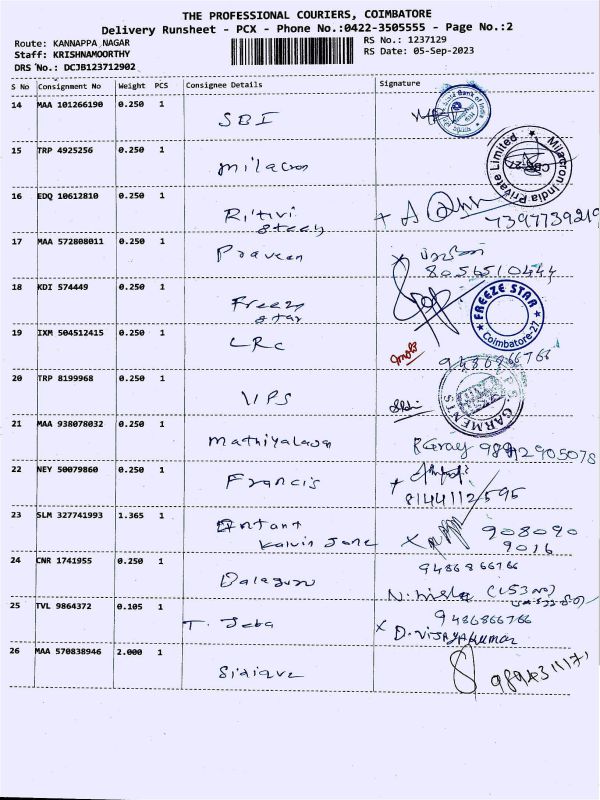 THE PROFESSIONAL COURIERS, COIMBATORE
Delivery Runsheet - PCX - Phone No.:0422-3505555 - Page No.:2
Route: KANNAPPA NAGAR RS No.: 1237129
Staff: KRISHNAMOORTHY RS Date: 05-Sep-2023
DRS No.: DCJB123712902
S No Consignment No Weight PCS Consignee Details Signature
14 MAA 101266190 0.250 1 SBI
15 TRP 4925256 0.250 1 milacron
Milacron India Private Limited
16 EDQ 10612810 0.250 1 Ritivi
7397739219
17 MAA 572808011 0.250 1 Praveen
8056510444
18 KDI 574449 0.250 1 Freeze
star
FREEZE STAR
Coimbatore-27
19 IXM 504512415 0.250 1 LRC
9486866766
20 TRP 8199968 0.250 1 VPS
VPS GARMENTS
21 MAA 938078032 0.250 1 mathiyalagan
22 NEY 50079860 0.250 1 Francis
8144112595
23 SLM 327741993 1.365 1
Kalvin Jone
908090
9016
24 CNR 1741955 0.250 1
9486866766
25 TVL 9864372 0.105 1 T. Jeba
9486866766
D. VIJAYAKUMAR
26 MAA 570838946 2.000 1